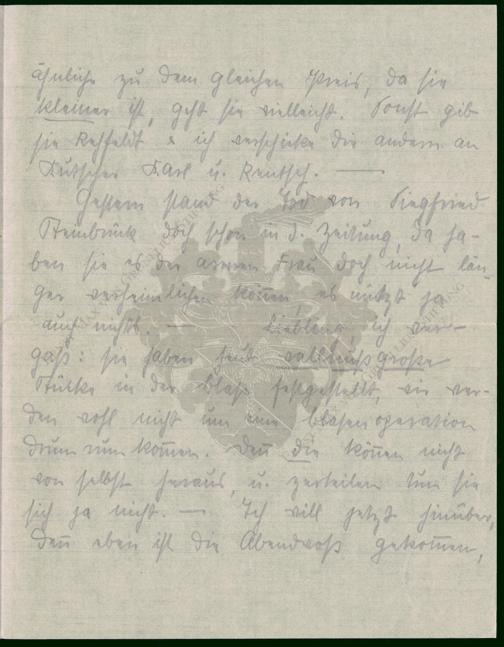 ähnliche zu dem gleichen Preis, da sie
kleiner ist, geht sie vielleicht. Sonst gib
sie Rehfeldt & ich verschicke die andern an
Kutscher Karl u. Rentsch. —
Gestern stand der Tod von Siegfried
Steinbrück doch schon in d. Zeitung, da ha-
ben sie es der armen Frau doch nicht län-
ger verheimlichen können, es nützt ja
auch nichts. — Liebling ich ver-
gaß: sie haben fünf wallnußgroße
Stücke in der Blase festgestellt, wir wer-
den wohl nicht um eine Blasenoperation
drum rum kom̄en. Den̄ die kön̄en nicht
von selbst heraus, u. zerteilen tun sie
sich ja nicht. — Ich will jetzt hinüber,
den̄ eben ist die Abendvoß gekom̄en,